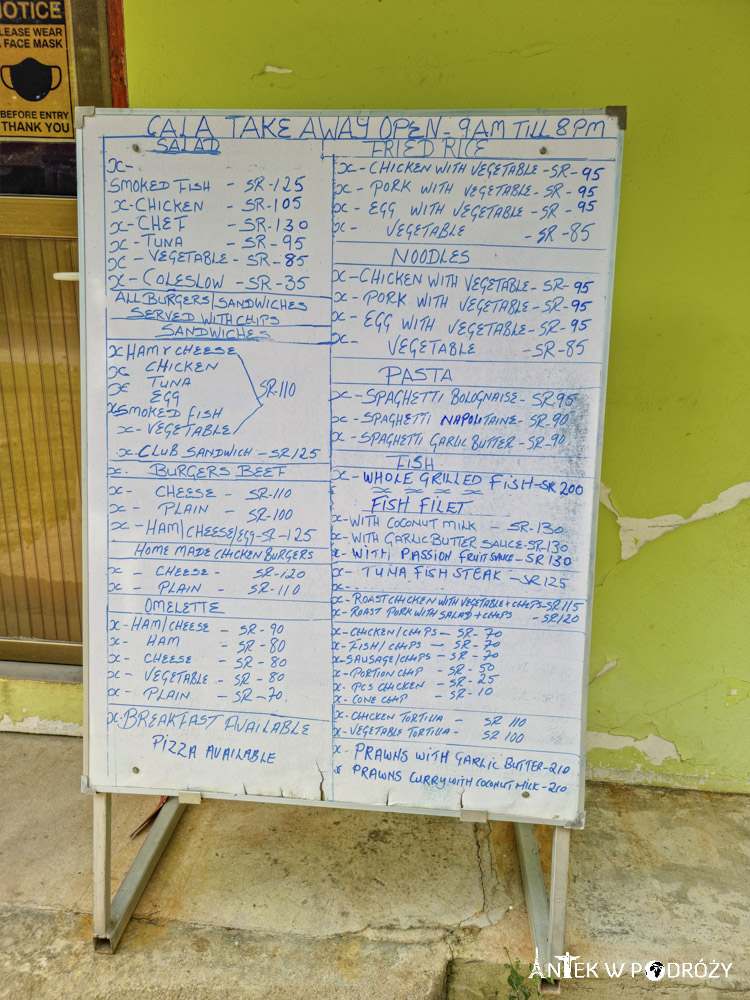 NOTICE
PLEASE WEAR
A FACE MASK
BEFORE ENTRY
THANK YOU
CAJA TAKE AWAY OPEN - 9AM TILL 8PM
SALAD
x-
SMOKED FISH - SR-125
x-CHICKEN - SR-105
x-CHEF - SR-130
x-TUNA - SR-95
x-VEGETABLE - SR-85
x-COLESLOW - SR-35
ALL BURGERS/SANDWICHES
SERVED WITH CHIPS
SANDWICHES
x HAM Y CHEESE
x CHICKEN
x TUNA
EGG
x SMOKED FISH
x-VEGETABLE
SR-110
x-CLUB SANDWICH - SR 125
x- BURGERS BEEF
x- CHEESE - SR-110
x- PLAIN - SR-100
x-HAM/CHEESE/EGG-SR-125
HOME MADE CHICKEN BURGERS
x - CHEESE - SR-120
x - PLAIN - SR-110
OMELETTE
x-HAM/CHEESE - SR-90
x- HAM - SR-80
x- CHEESE - SR-80
x- VEGETABLE - SR-80
x- PLAIN - SR-70.
x-BREAKFAST AVAILABLE
PIZZA AVAILABLE
FRIED RICE
x-CHICKEN WITH VEGETABLE-SR-95
x-PORK WITH VEGETABLE-SR-95
x-EGG WITH VEGETABLE-SR-95
x- VEGETABLE - SR-85
NOODLES
x-CHICKEN WITH VEGETABLE-SR-95
x-PORK WITH VEGETABLE-SR-95
x-EGG WITH VEGETABLE-SR-95
x- VEGETABLE -SR-85
PASTA
x-SPAGHETTI BOLOGNAISE-SR 95
x-SPAGHETTI NAPOLITAINE-SR.90
x-SPAGHETTI GARLIC BUTTER-SR-90
FISH
x-WHOLE GRILLED FISH-SR 200
FISH FILET
x-WITH COCONUT MILK - SR-130
x-WITH GARLIC BUTTER SAUCE-SR-130
x-WITH PASSION FRUIT SAUCE-SR 130
x-TUNA FISH STEAK -SR 125
x-ROAST CHICKEN WITH VEGETABLE+CHIPS-SR115
x-ROAST PORK WITH SALAD+CHIPS -SR120
x-CHICKEN/CHIPS- SR-70
x-FISH/CHIPS - SR-70
x-SAUSAGE/CHIPS-SR-70
x-PORTION CHIP -SR-50
x-PCS CHICKEN -SR-25
x-CONE CHIP -SR-10
x-CHICKEN TORTILLA - SR 110
x-VEGETABLE TORTILLA- SR 100
x-PRAWNS WITH GARLIC BUTTER-210
x PRAWNS CURRY WITH COCONUT MILK-210
ANTEK W PODRÓŻY